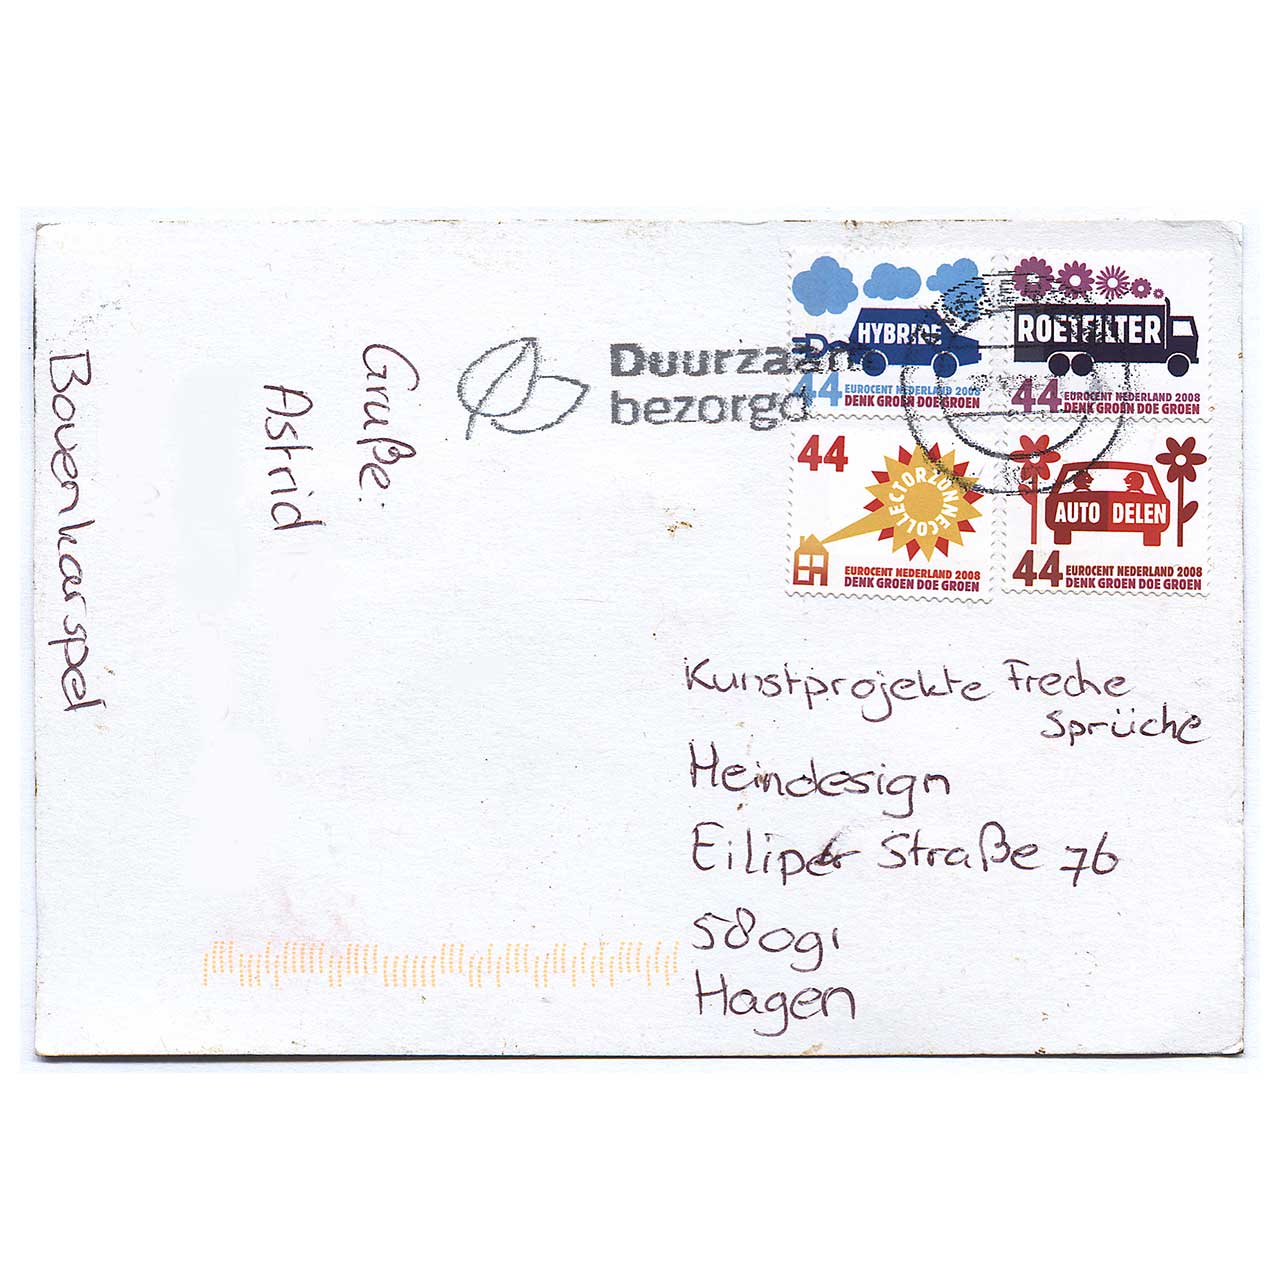 Grüße:
Astrid
Bovenkarspel
Duurzaam
bezorgd
HYBRIDE
44 EUROCENT NEDERLAND 2008
DENK GROEN DOE GROEN
ROETFILTER
44 EUROCENT NEDERLAND 2008
DENK GROEN DOE GROEN
44
ZONNECOLLECTOR
EUROCENT NEDERLAND 2008
DENK GROEN DOE GROEN
AUTO DELEN
44 EUROCENT NEDERLAND 2008
DENK GROEN DOE GROEN
Kunstprojekte Freche
Sprüche
Heindesign
Eilper Straße 76
58091
Hagen